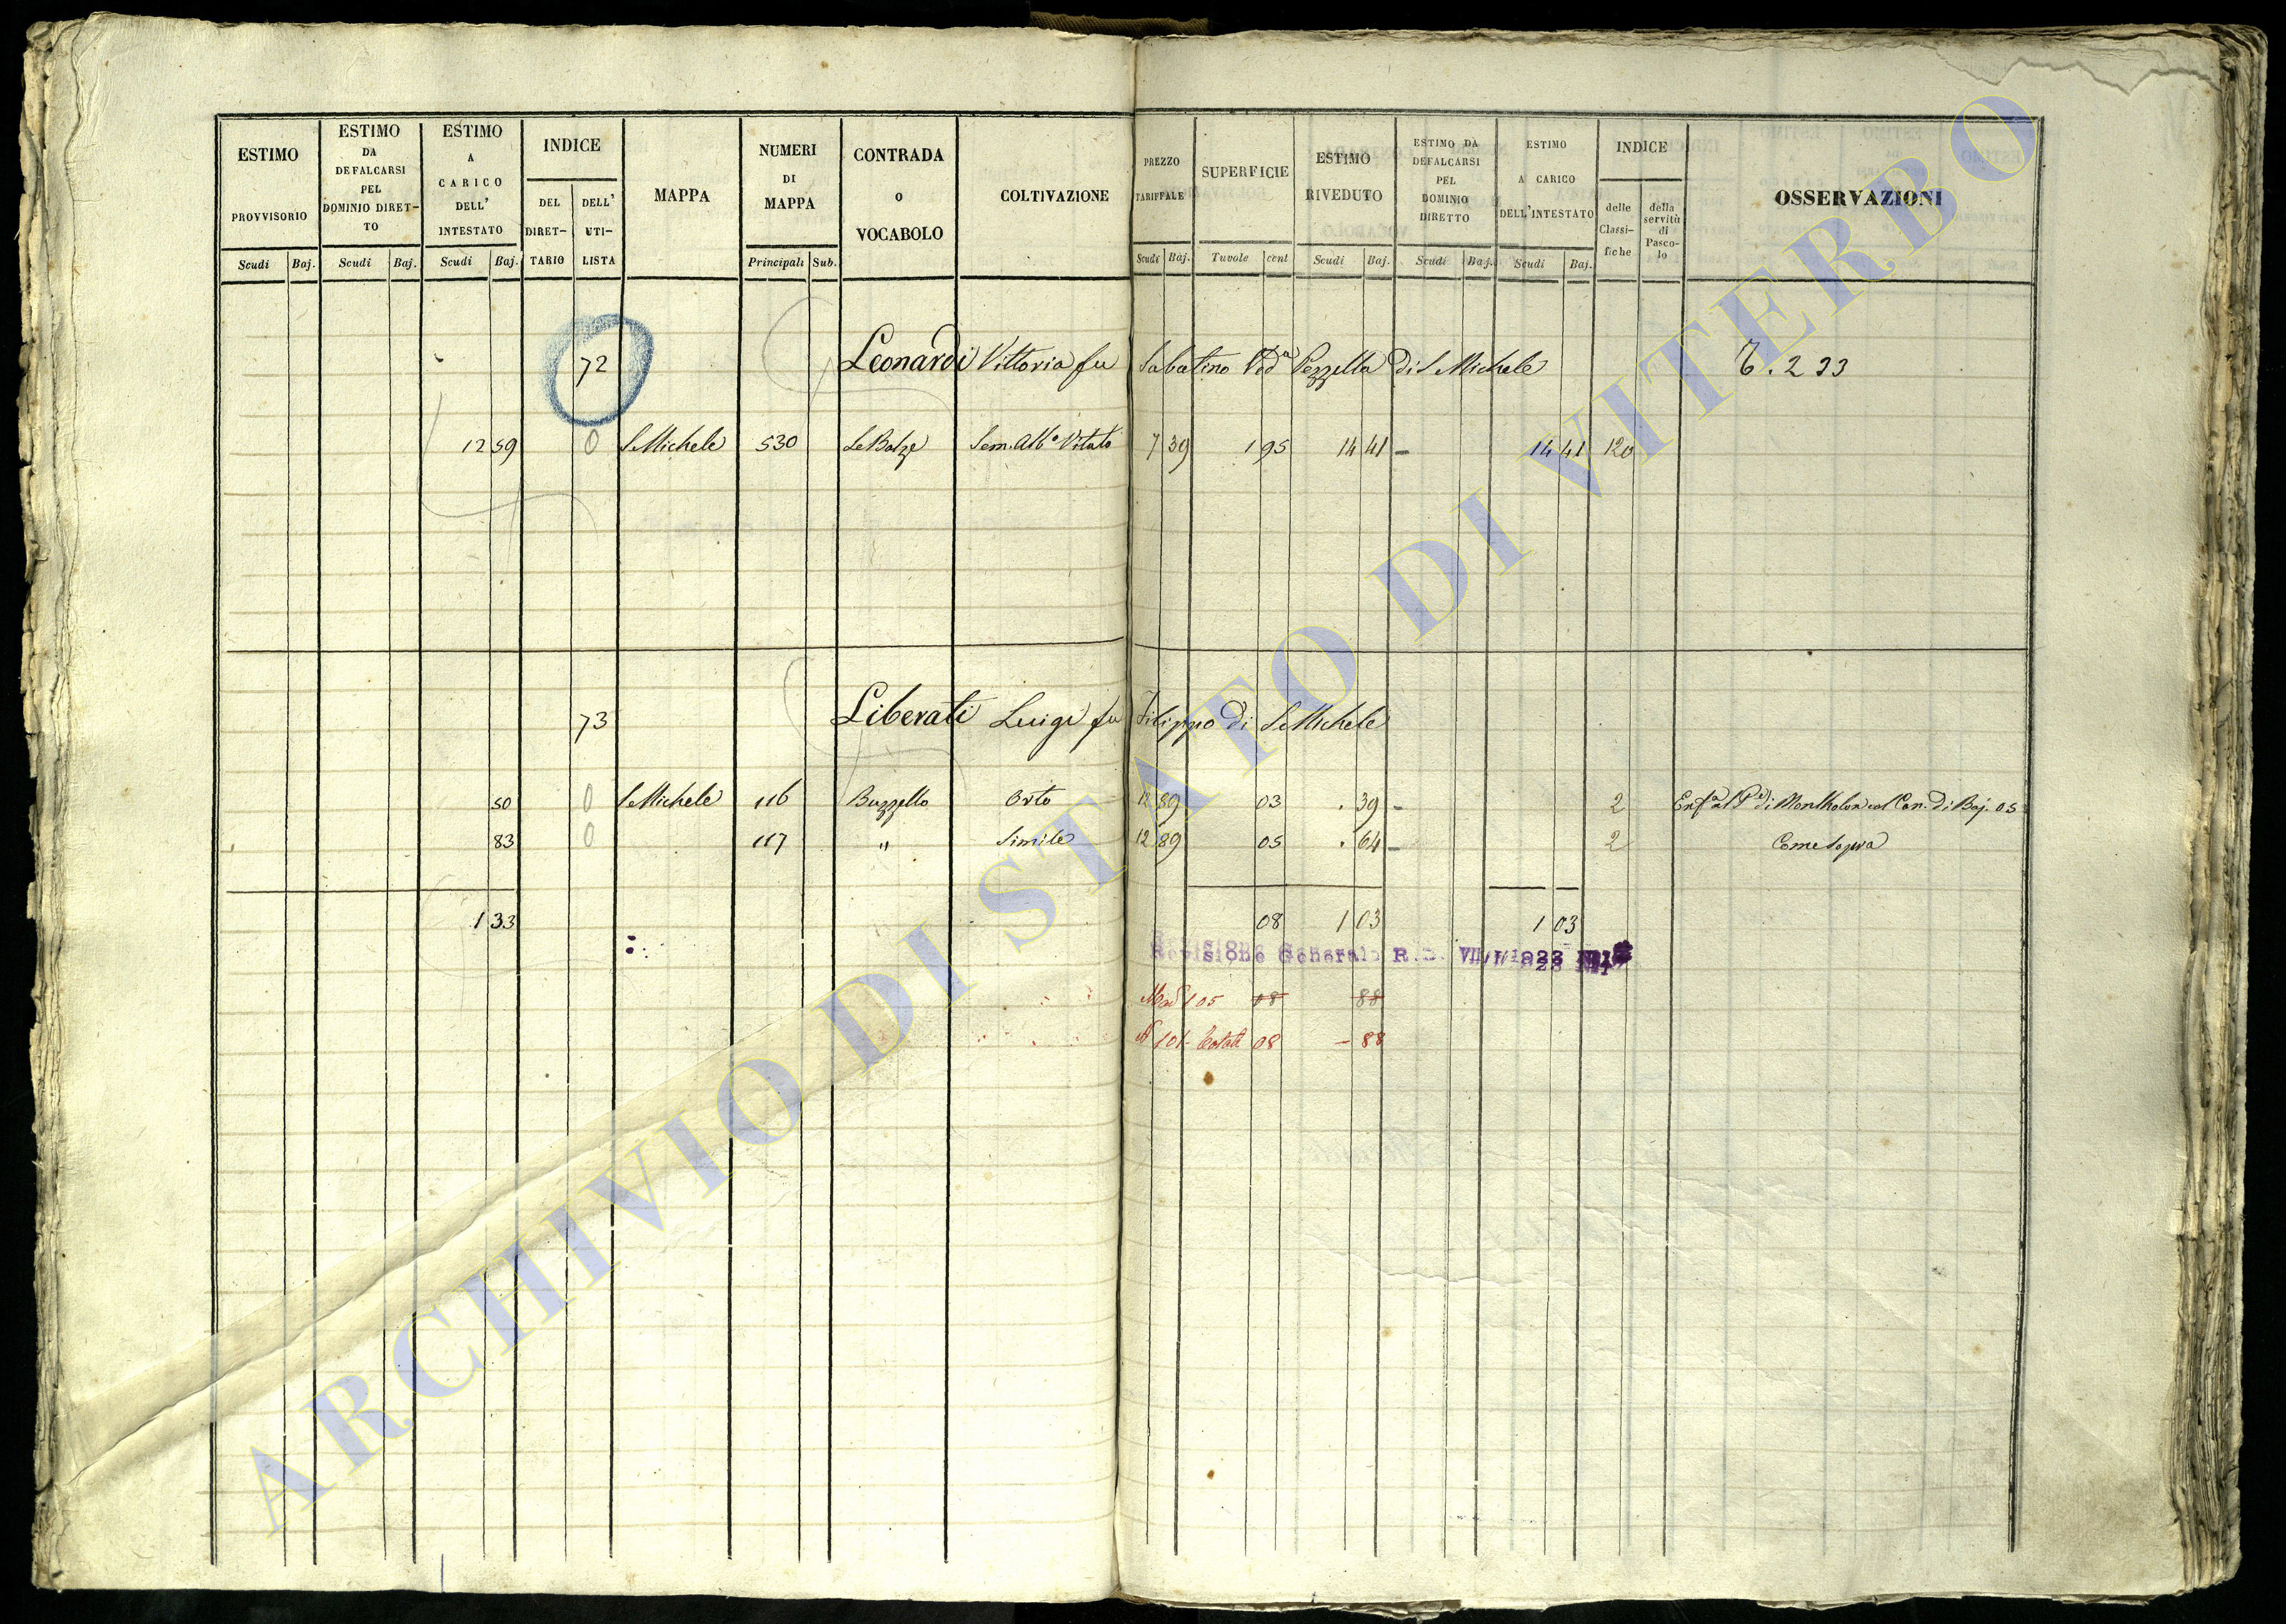 ESTIMO PROVVISORIO Scudi Baj.
ESTIMO DA DEFALCARSI PEL DOMINIO DIRET-TO Scudi Baj.
ESTIMO A CARICO DELL' INTESTATO Scudi Baj.
INDICE DEL DIRET-TARIO DELL' UTI-LISTA
MAPPA
NUMERI DI MAPPA Principali Sub.
CONTRADA o VOCABOLO
COLTIVAZIONE
PREZZO TARIFFALE Scudi Baj.
SUPERFICIE Tavole cent
ESTIMO RIVEDUTO Scudi Baj.
ESTIMO DA DEFALCARSI PEL DOMINIO DIRETTO Scudi Baj.
ESTIMO A CARICO DELL'INTESTATO Scudi Baj.
INDICE delle Classi-fiche della servitù di Pasco-lo
OSSERVAZIONI
72 Leonardi Vittoria fu Sabatino Ved.a Pezzella di S. Michele 233
12 59 0 S. Michele 530 Le Balze Sem. Alb.o Vitato 7 39 1 95 14 41 – 14 41 120
73 Liberati Luigi fu Filippo di S. Michele
50 0 S. Michele 116 Buzzello Orto 12 89 03 . 39 – 2 di Montholon col Can. di Baj. 05
83 0 117 " Simile 12 89 05 . 64 – 2 Come Sopra
1 33 08 1 03 1 03
Revisione Generale R.D. VII/I/1923
105 08 88
N 101 08 – 88
ARCHIVIO DI STATO DI VITERBO